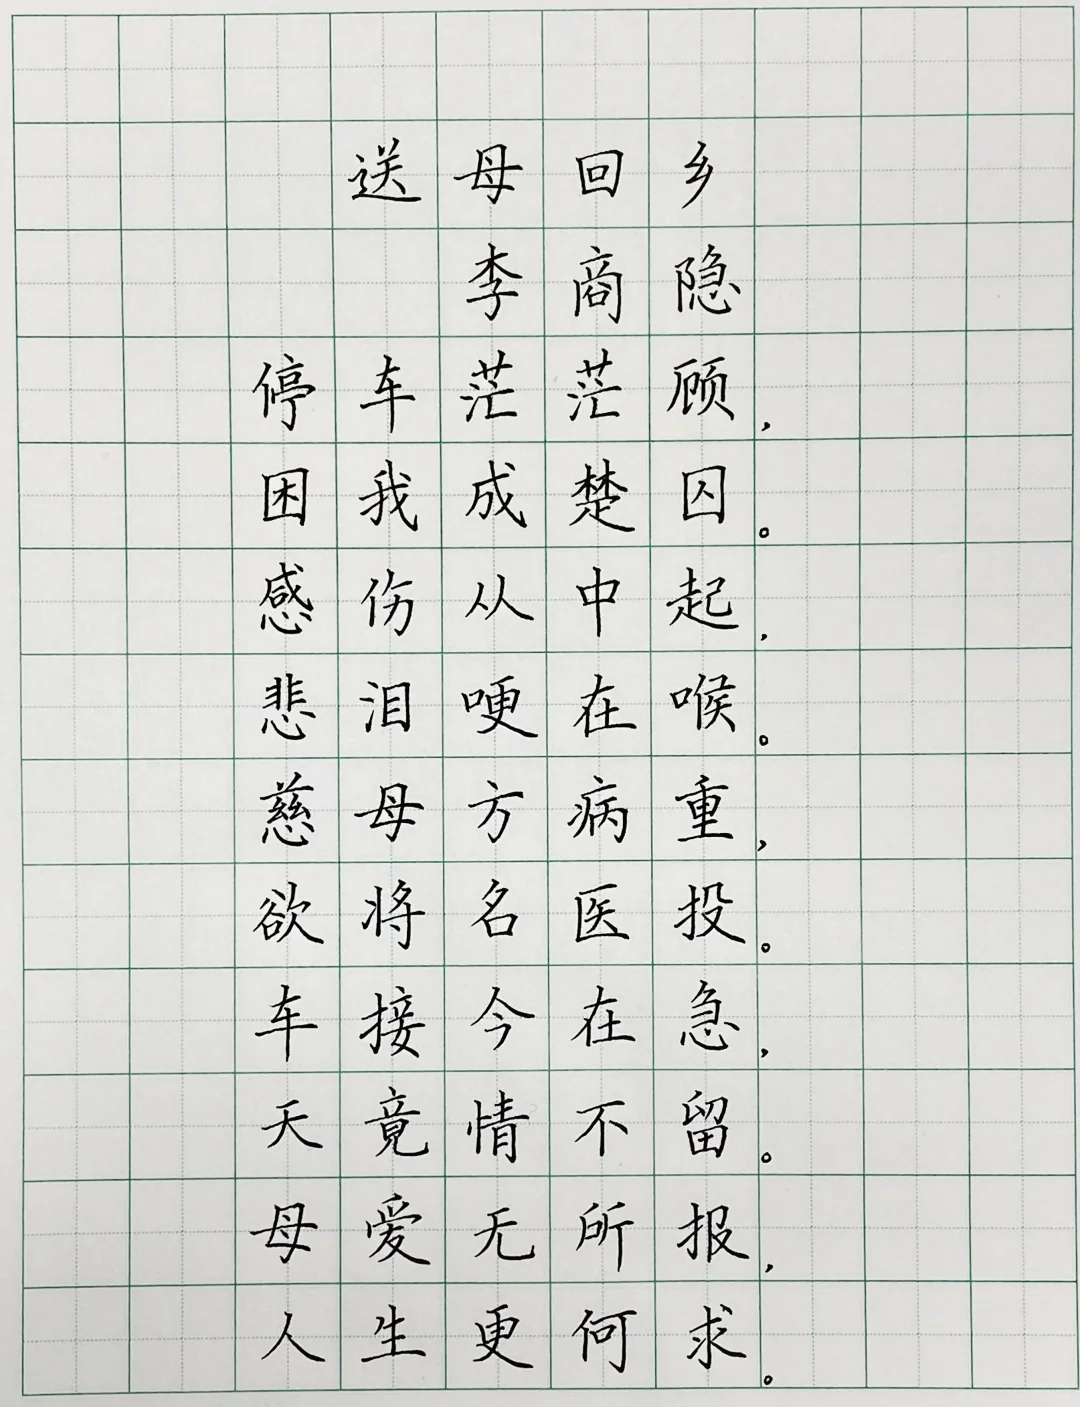 送母回乡
李商隐
停车茫茫顾，
困我成楚囚。
感伤从中起，
悲泪哽在喉。
慈母方病重，
欲将名医投。
车接今在急，
天竟情不留。
母爱无所报，
人生更何求。